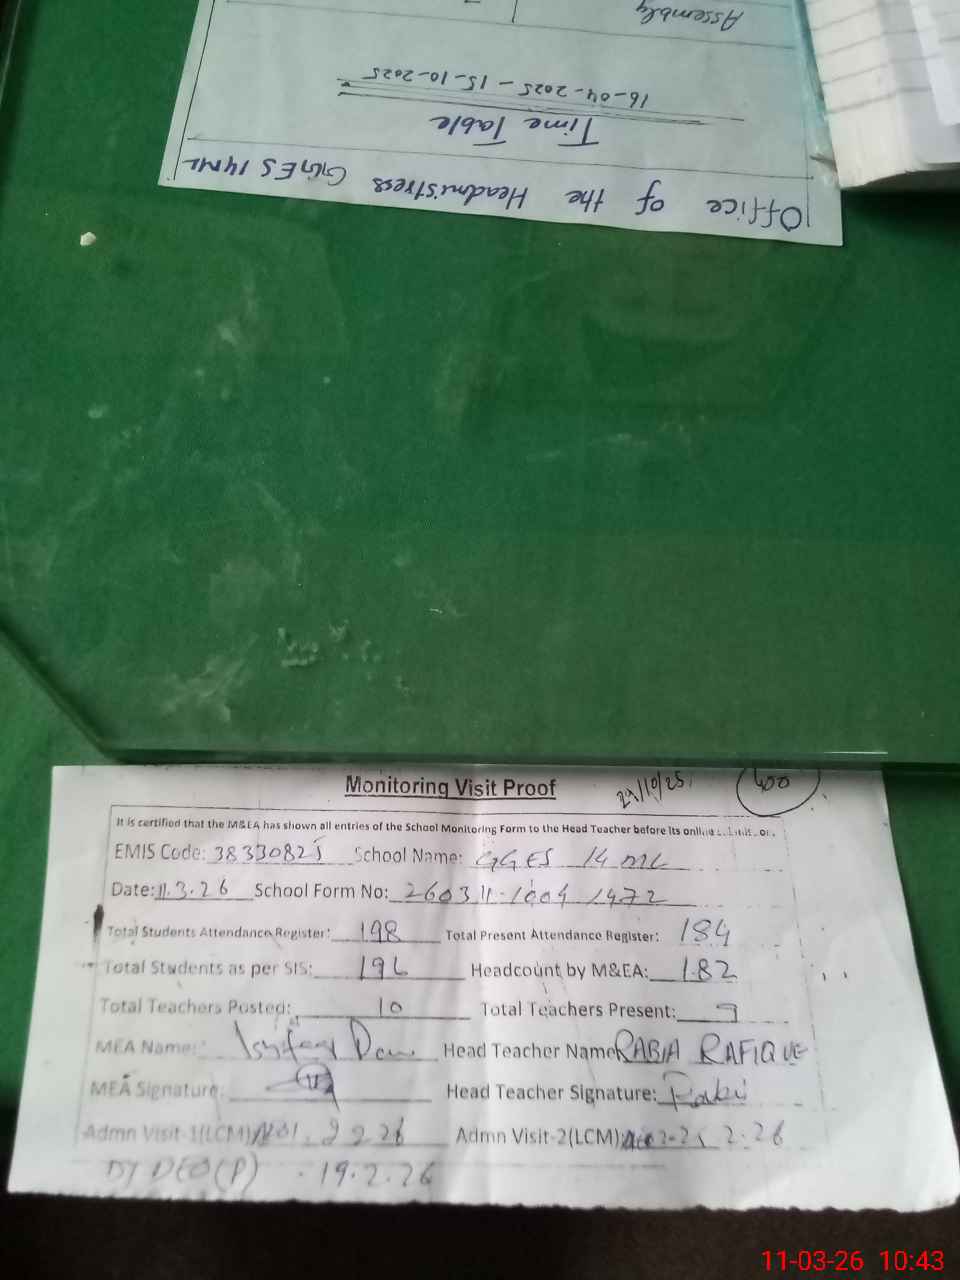 Office of the Headmistress GGES 14ML
Time Table
16-04-2025 - 15-10-2025
Assembly
Monitoring Visit Proof 29/10/25 400
It is certified that the M&EA has shown all entries of the School Monitoring Form to the Head Teacher before its online
EMIS Code: 38330825 School Name: GGES 14 ML
Date: 11.3.26 School Form No: 260311-1004 1472
Total Students Attendance Register: 198 Total Present Attendance Register: 184
Total Students as per SIS: 196 Headcount by M&EA: 182
Total Teachers Posted: 10 Total Teachers Present: 9
MEA Name: Head Teacher Name RABIA RAFIQUE
MEA Signature: Head Teacher Signature: Rabi
Admn Visit-1(LCM) 2 2 26 Admn Visit-2(LCM) 2.26
DY DEO(P) . 19.2.26
11-03-26 10:43